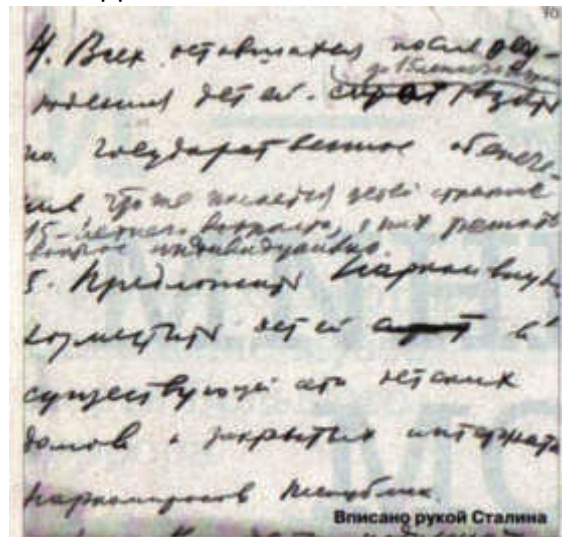 4. Всех оставшихся после осу-
до 15-летнего возраста
ждения детей-сирот взять
на государственное обеспече-
ние что же касается детей старше
15-летнего возраста, о них решать
вопрос индивидуально.
5. Предложить Наркомвнуделу
разместить детей сирот в
существующей сети детских
домов и закрытых интернатах
наркомпросов республик.
Вписано рукой Сталина